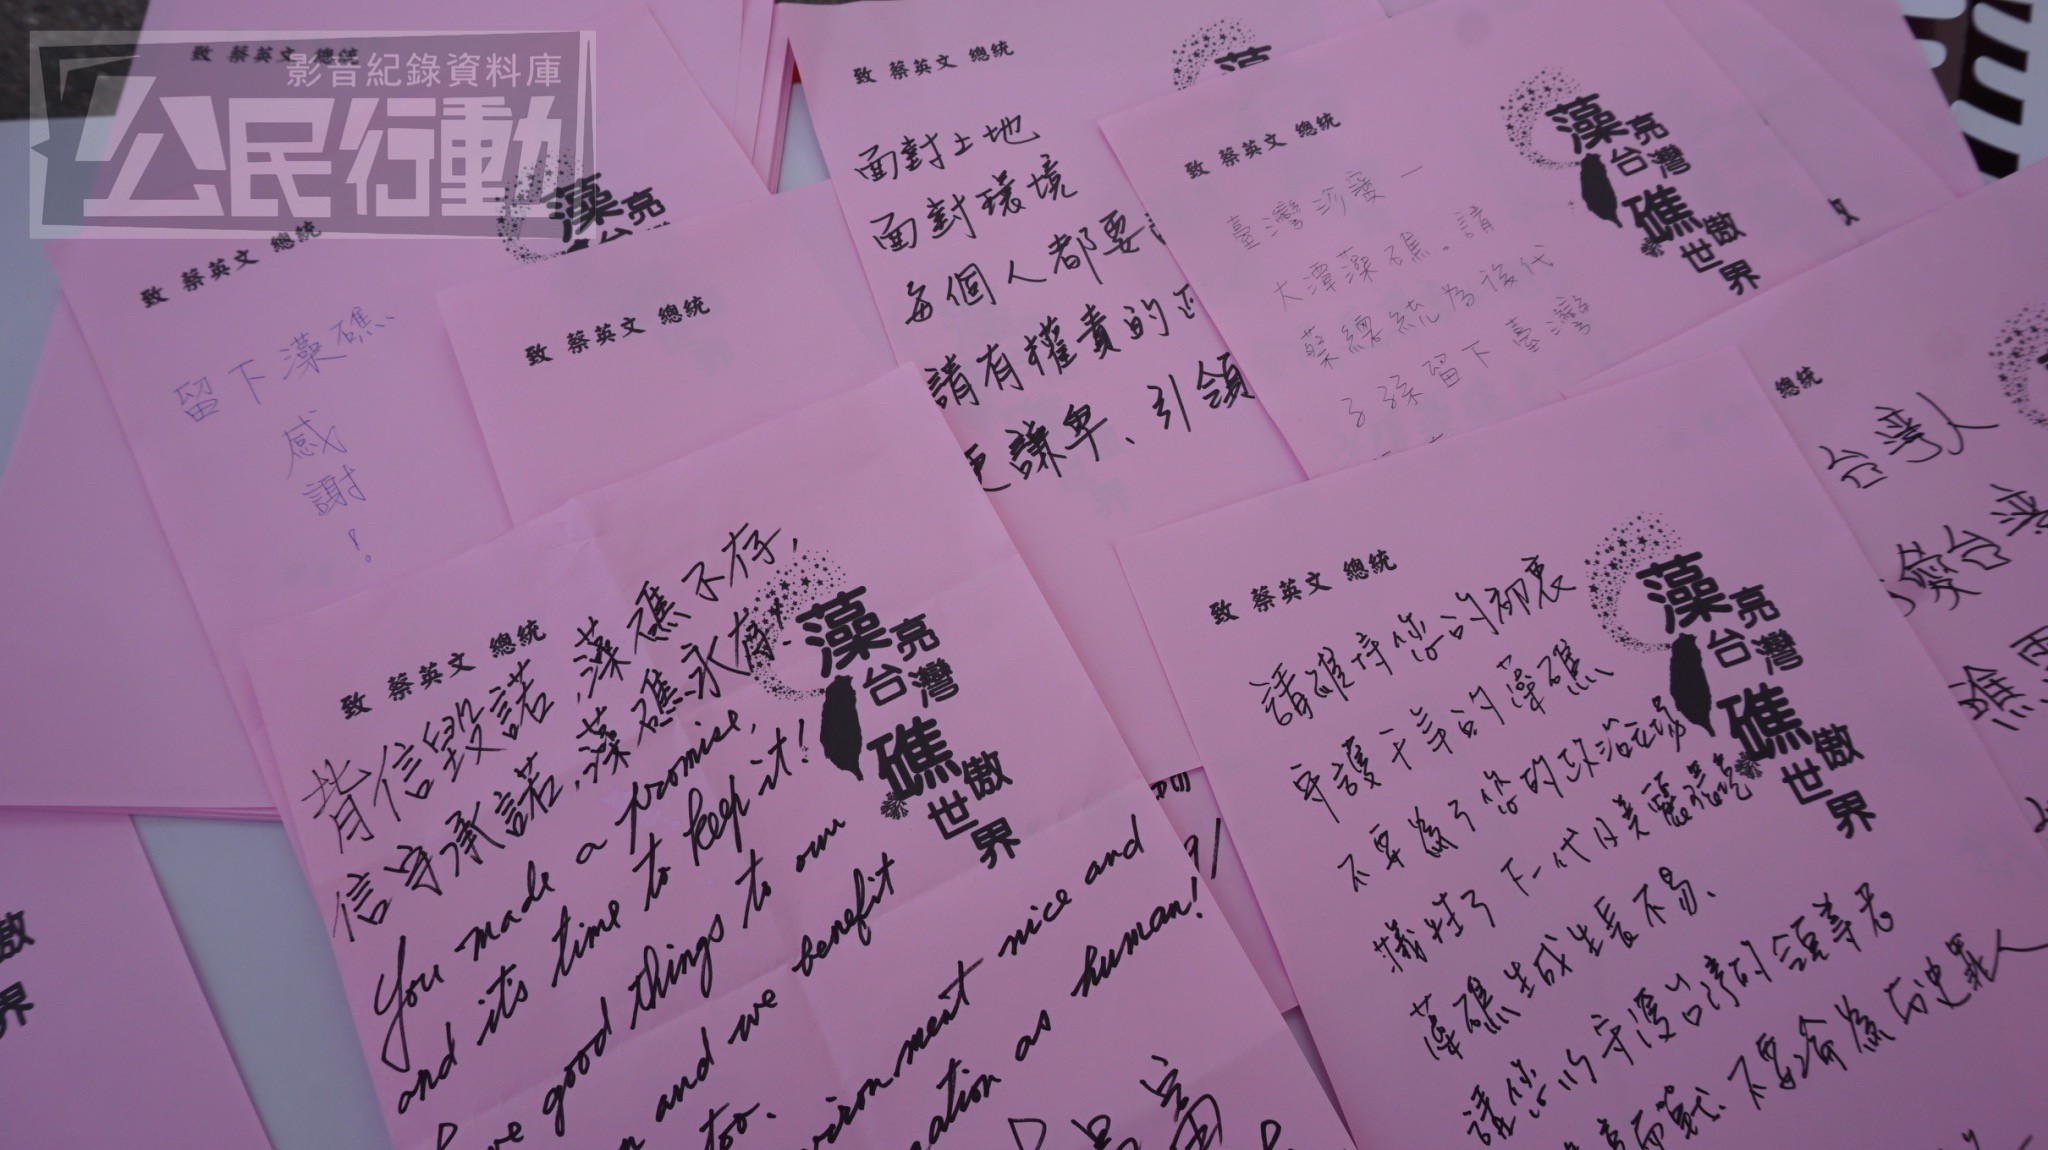 影音紀錄資料庫
公民行動
致 蔡英文 總統
致 蔡英文 總統
藻亮
留下藻礁
感謝!
致 蔡英文 總統
致 蔡英文 總統
藻
面對土地
面對環境
每個人都要
請有權責的
謙卑、引領
致 蔡英文 總統
藻亮
台灣
礁傲
世界
臺灣珍寶一
大潭藻礁。請
蔡總統為後代
子孫留下臺灣
致 蔡英文 總統
藻亮
台灣
礁傲
世界
背信毀諾,藻礁不存,
信守承諾,藻礁永存!
You made a promise,
and it's time to keep it!
good things to our
and we benefit
too.
nice and
as human!
致 蔡英文 總統
藻亮
台灣
礁傲
世界
請維持您的初衷
守護千年的藻礁
不要為了您的政治立場
犧牲了下一代及美麗環境
藻礁生成生長不易、
請您以守護台灣的領導者
不要淪為歷史罪人
總統
台灣人
愛台灣
礁
傲
界